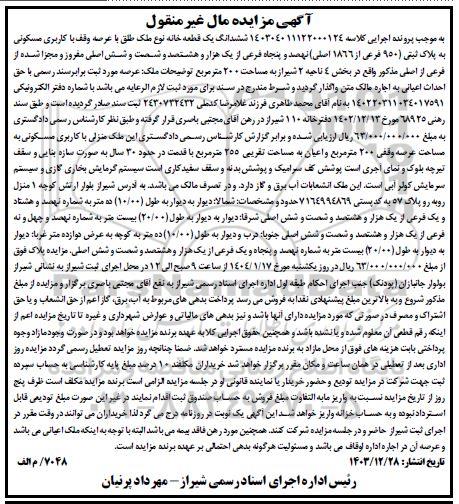 آگهی مزایده مال غیر منقول
به موجب پرونده اجرایی کلاسه ۱۴۰۳۰۴۰۱۱۱۲۲۰۰۰۱۲۴ ششدانگ یک قطعه خانه نوع ملک طلق با عرصه وقف با کاربری مسکونی
به پلاک ثبتی (۹۵۰ فرعی از ۱۸۶۶ اصلی) نهصد و پنجاه فرعی از یک هزار و هشتصد و شصت و شش اصلی مفروز و مجزا شده از
فرعی از اصلی مذکور واقع در بخش ۴ ناحیه ۲ شیراز به مساحت ۲۰۰ مترمربع توضیحات ملک: عرصه مورد ثبت برابر سند رسمی با حق
احداث اعیانی به اجاره مالک متن واگذار گردید و شرط مندرج در سند برای مورد ثبت لازم الرعایه می باشد با شماره دفتر الکترونیکی
۱۴۰۲۲۰۳۱۱۰۳۴۰۱۷۵۹۱ به نام آقای محمد طاهری فرزند غلامرضا کدملی ۲۴۳۰۷۳۲۴۳۲ ثبت سند صادر گردیده است و طبق سند
رهنی ۶۸۹۲۵ مورخ ۱۴۰۲/۱۲/۱۲ دفترخانه ۱۱۰ شیراز در رهن آقای مجتبی یاسری قرار گرفته و طبق نظر کارشناس رسمی دادگستری
به مبلغ ۶۳/۰۰۰/۰۰۰/۰۰۰ ریال ارزیابی شده و برابر گزارش کارشناس رسمی دادگستری این ملک منزلی با کاربری مسکونی به
مساحت عرصه وقفی ۲۰۰ مترمربع و اعیان به مساحت تقریبی ۲۵۵ مترمربع با قدمت در حدود ۳۰ سال به صورت سازه بنایی و سقف
تیرچه بلوک و نمای آجری است پوشش کف سرامیک و پوشش بدنه و سقف سفیدکاری است سیستم گرمایش بخاری گازی و سیستم
سرمایش کولر آبی است. این ملک انشعابات آب برق و گاز دارد. و در تصرف مالک می باشد. به آدرس شیراز بلوار ارتش کوچه ۱ منزل
روبه رو پلاک ۵۷ به کدپستی ۷۱۶۴۹۹۴۸۶۹ حدود و مشخصات: شمالا: دیوار به دیوار به طول (۱۰/۰۰) ده متر به شماره نهصد و هشتاد
و یک فرعی از یک هزار و هشتصد و شصت و شش اصلی شرقا: دیوار به دیوار به طول (۲۰/۰۰) بیست متر به شماره نهصد و چهل و نه
فرعی از یک هزار و هشتصد و شصت و شش اصلی جنوبا: درب و دیوار به طول (۱۰/۰۰) ده متر به کوچه به عرض دوازده متر غربا: دیوار
به دیوار به طول (۲۰/۰۰) بیست متر به شماره نهصد و پنجاه و یک فرعی از یک هزار و هشتصد و شصت و شش اصلی. مزایده پلاک فوق
از مبلغ ۶۳/۰۰۰/۰۰۰/۰۰۰ ریال در روز یکشنبه مورخ ۱۴۰۴/۱/۱۷ از ساعت ۹ صبح الی ۱۲ در محل اجرای ثبت شیراز به نشانی شیراز
بولوار جانبازان (پودنک) جنب اجرای احکام طبقه اول اداره اجرای اسناد رسمی شیراز به نفع آقای مجتبی یاسری برگزار و مزایده از مبلغ
مذکور شروع و به بالاترین مبلغ پیشنهادی نقدا به فروش می رسد پرداخت بدهی های مربوط به آب، برق، گاز اعم از حق انشعاب و یا حق
اشتراک و مصرف در صورتی که مورد مزایده دارای آنها باشد و نیز بدهی های مالیاتی و عوارض شهرداری و غیره تا تاریخ مزایده اعم از
اینکه رقم قطعی آن معلوم شده و یا نشده باشد و همچنین حقوق اجرایی کلا به عهده برنده مزایده خواهد بود و در صورت وجود مازاد وجوه
پرداختی بابت هزینه های فوق از محل مازاد به برنده مزایده مسترد خواهد شد. ضمنا چنانچه روز مزایده تعطیل رسمی گردد مزایده روز
اداری بعد از تعطیلی در همان ساعت و مکان مقرر برگزار خواهد شد خریداران مکلفند ۱۰ درصد مبلغ پایه کارشناسی به حساب سپرده
ثبت جهت شرکت در مزایده تودیع و حضور خریدار یا نماینده قانونی او در جلسه مزایده الزامی است برنده مزایده مکلف است ظرف پنج
روز از تاریخ مزایده نسبت به واریز مابه التفاوت مبلغ فروش به حساب صندوق ثبت اقدام نماید در غیر این صورت مبلغ تودیعی قابل
استرداد نبوده و به حساب خزانه واریز خواهد شد این آگهی یک نوبت در روزنامه درج می گردد لذا خریداران می توانند در وقت مقرر در
اجرای ثبت شیراز حاضر و در جلسه مزایده شرکت کنند. همچنین مورد رهن فاقد بیمه می باشد البته با توجه به اینکه ملک اعیانی می باشد
و عرصه آن در اجاره اداره اوقاف می باشد و مسئولیت هرگونه بدهی احتمالی بر عهده برنده مزایده است.
تاریخ انتشار: ۱۴۰۳/۱۲/۲۸ ۷۰۴۸/م الف
رئیس اداره اجرای اسناد رسمی شیراز - مهرداد پرنیان